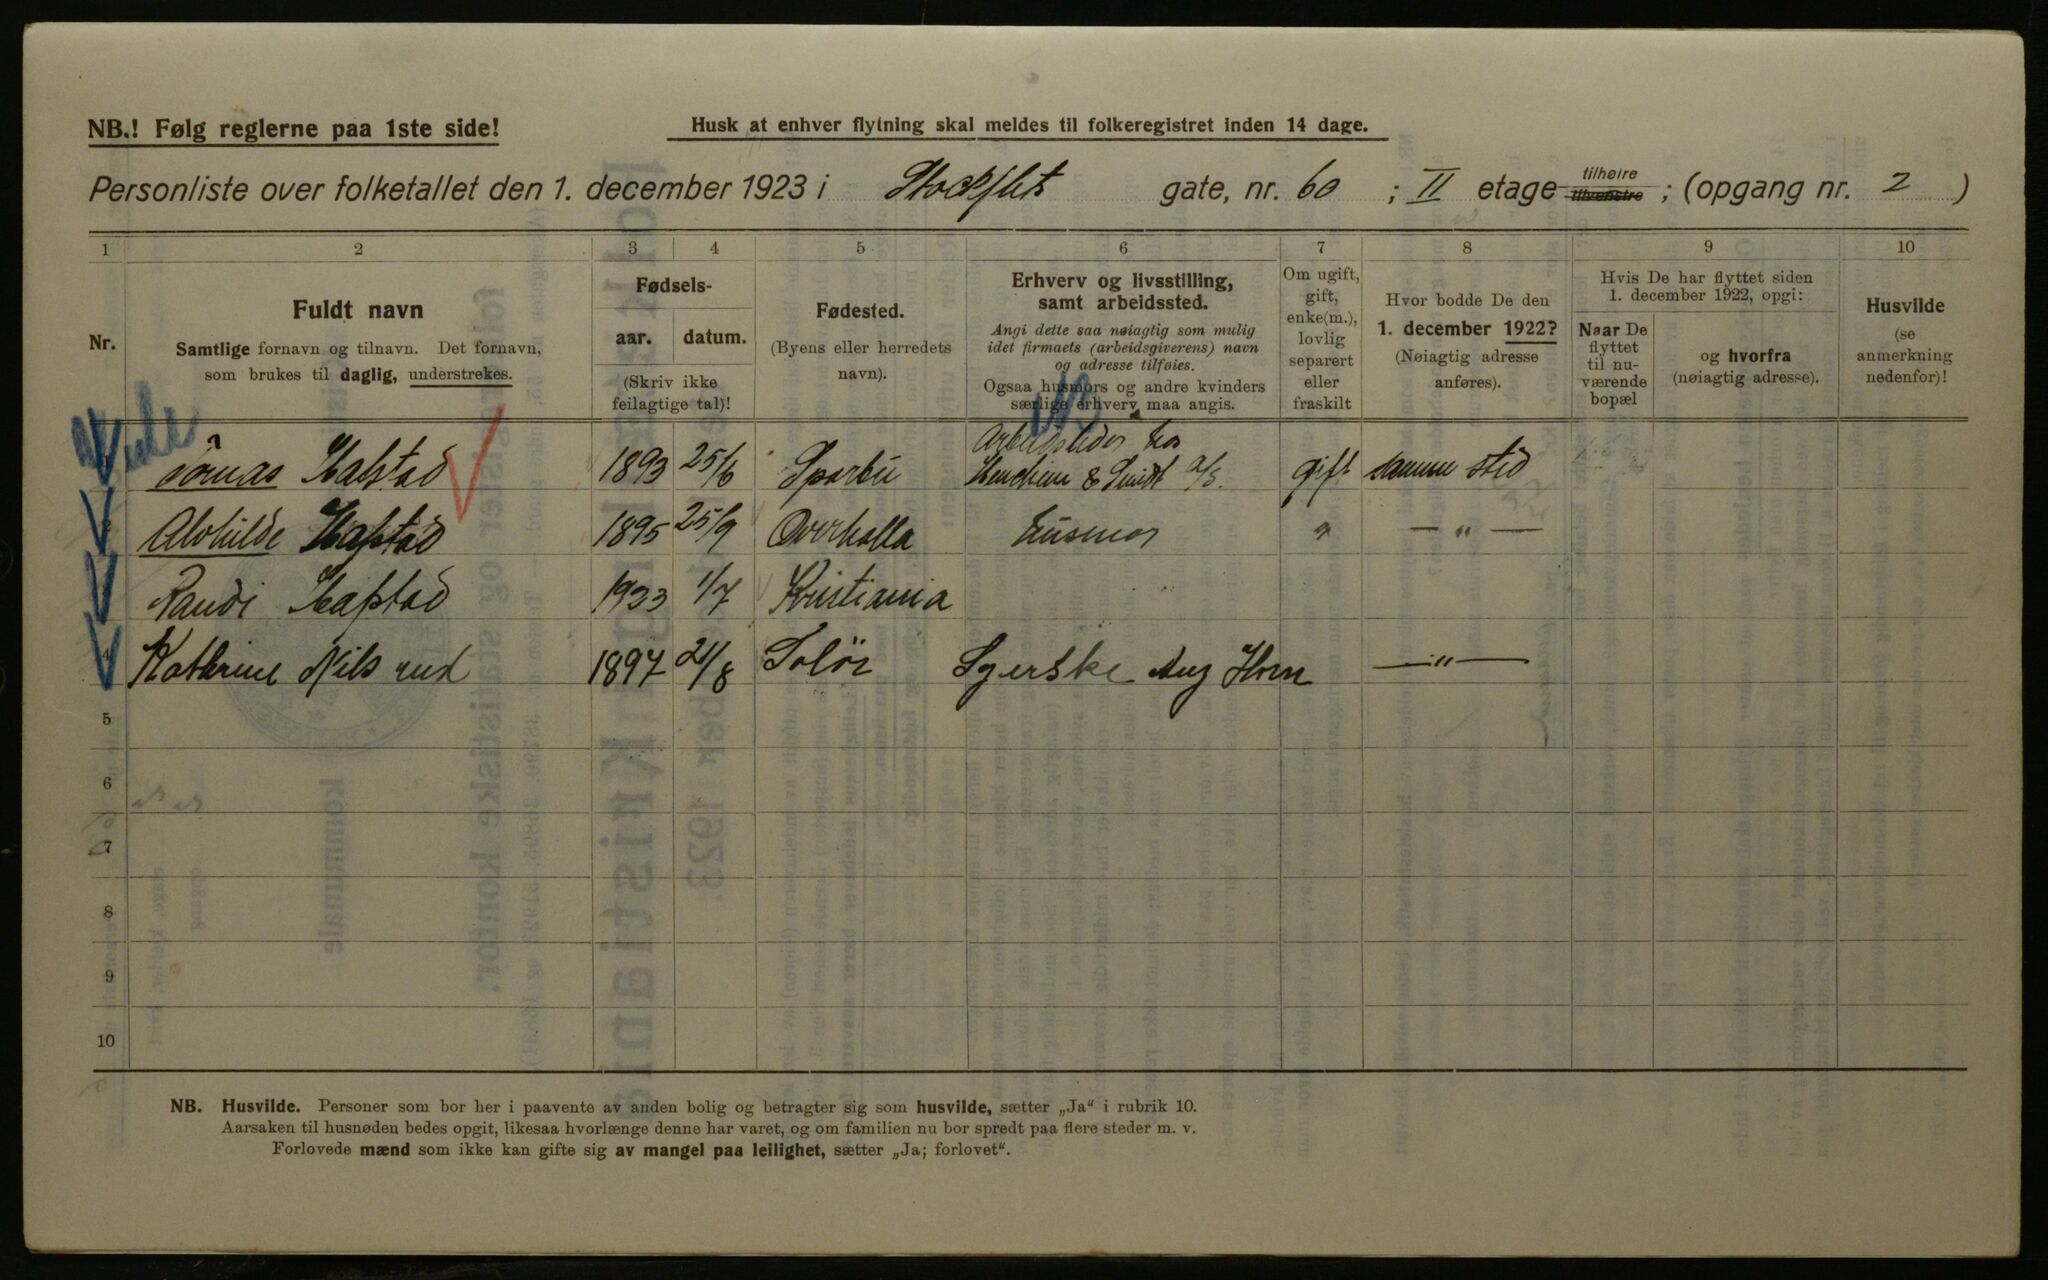 NB.! Følg reglerne paa 1ste side!
Husk at enhver flytning skal meldes til folkeregistret inden 14 dage.
Personliste over folketallet den 1. december 1923 i Stockflets gate, nr. 60 ; II etage tilhøire tilvenstre ; (opgang nr. 2 )
1 2 3 4 5 6 7 8 9 10
Nr.
Fuldt navn
Samtlige fornavn og tilnavn. Det fornavn,
som brukes til daglig, understrekes.
Fødsels-
aar. datum.
(Skriv ikke
feilagtige tal)!
Fødested.
(Byens eller herredets
navn).
Erhverv og livsstilling,
samt arbeidssted.
Angi dette saa nøiagtig som mulig
idet firmaets (arbeidsgiverens) navn
og adresse tilføies.
Ogsaa husmors og andre kvinders
særlige erhverv maa angis.
Om ugift,
gift,
enke(m.),
lovlig
separert
eller
fraskilt
Hvor bodde De den
1. december 1922?
(Nøiagtig adresse
anføres).
Hvis De har flyttet siden
1. december 1922, opgi:
Naar De
flyttet
til nu-
værende
bopæl
og hvorfra
(nøiagtig adresse).
Husvilde
(se
anmerkning
nedenfor)!
Tomas Hafstad 1893 25/6 Sparbu Arbeidsleder hos & Smidt A/S. gift samme sted
2 Alvhilde Hafstad 1895 25/9 Overhalla Husmor " — " —
Randi Hafstad 1923 1/7 Kristiania
4 Kathrine Nilsrud 1897 21/8 Solör Syerske Aug Horn — " —
5
6
7
8
9
10
NB. Husvilde. Personer som bor her i paavente av anden bolig og betragter sig som husvilde, sætter „Ja" i rubrik 10.
Aarsaken til husnøden bedes opgit, likesaa hvorlænge denne har varet, og om familien nu bor spredt paa flere steder m. v.
Forlovede mænd som ikke kan gifte sig av mangel paa leilighet, sætter „Ja; forlovet".